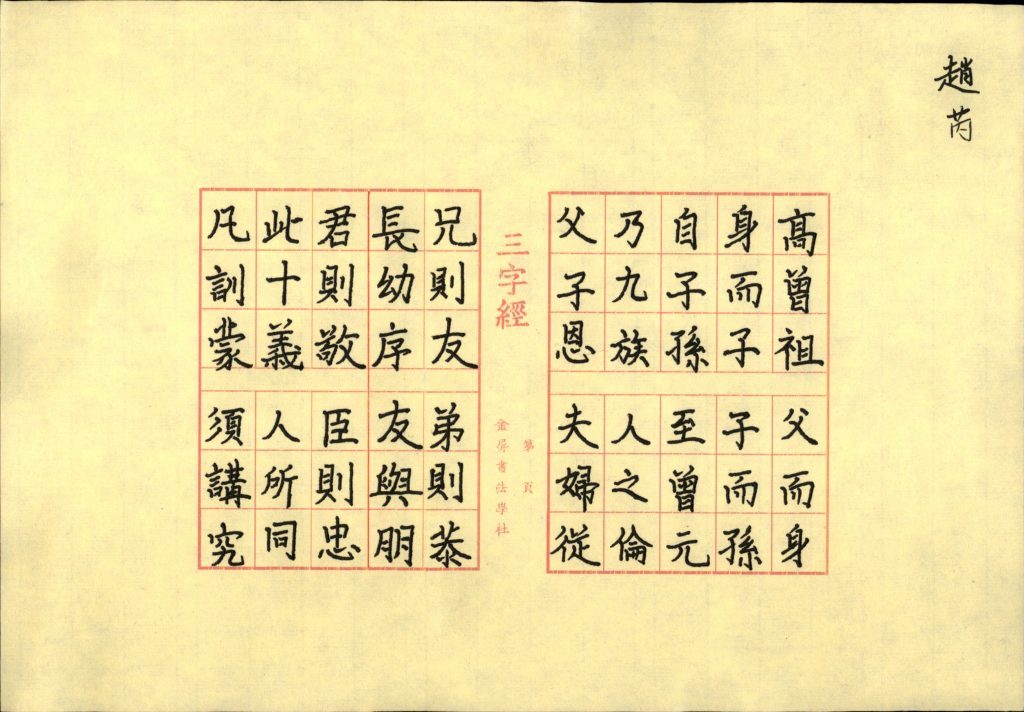 趙芮
高曾祖 父而身
身而子 子而孫
自子孫 至曾元
乃九族 人之倫
父子恩 夫婦從
三字經
第 頁
金屏書法學社
兄則友 弟則恭
長幼序 友與朋
君則敬 臣則忠
此十義 人所同
凡訓蒙 須講究